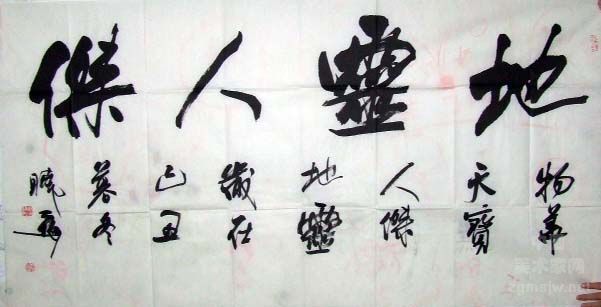 地靈人傑
物華
天寶
人傑
地靈
歲在
己丑
暮冬
曉
美术家网
zgmsjw